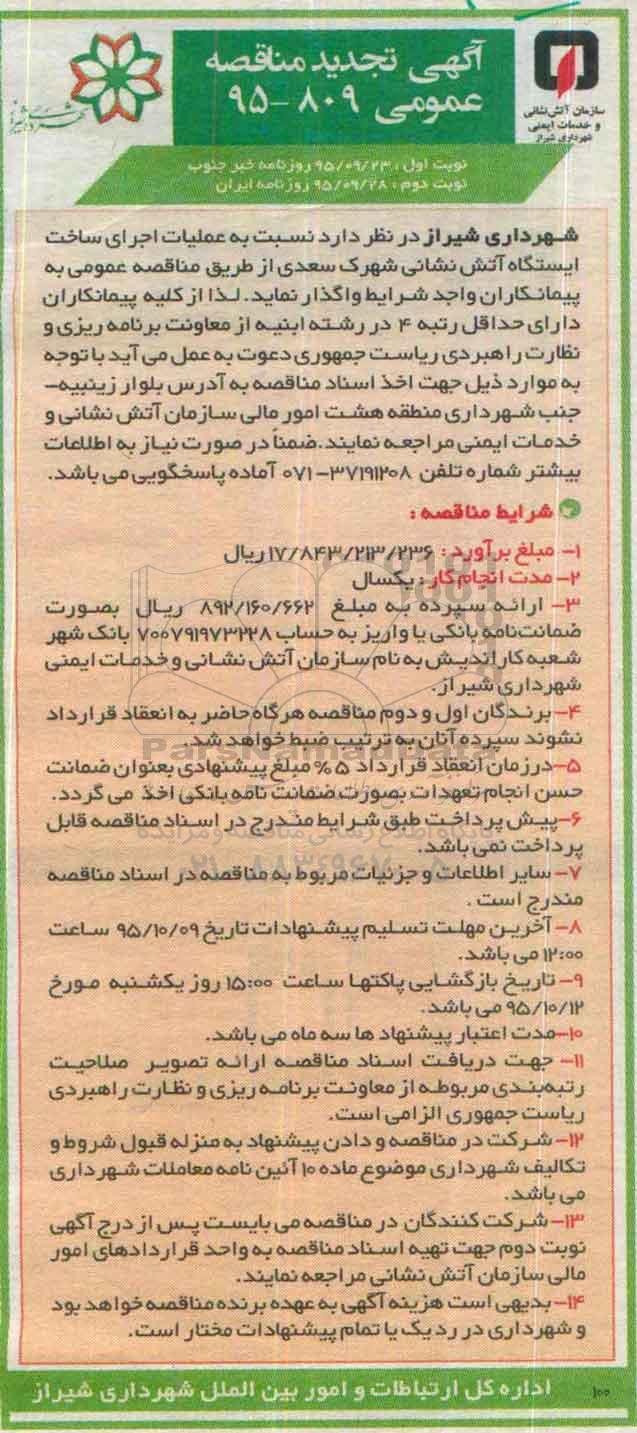 آگهی تجدید مناقصه
عمومی ۸۰۹-۹۵
سازمان آتش نشانی
و خدمات ایمنی
شهرداری شیراز
شهرداری شیراز
نوبت اول : ۹۵/۰۹/۲۳ روزنامه خبر جنوب
نوبت دوم : ۹۵/۰۹/۲۸ روزنامه ایران
شهرداری شیراز در نظر دارد نسبت به عملیات اجرای ساخت
ایستگاه آتش نشانی شهرک سعدی از طریق مناقصه عمومی به
پیمانکاران واجد شرایط واگذار نماید. لذا از کلیه پیمانکاران
دارای حداقل رتبه ۴ در رشته ابنیه از معاونت برنامه ریزی و
نظارت راهبردی ریاست جمهوری دعوت به عمل می آید با توجه
به موارد ذیل جهت اخذ اسناد مناقصه به آدرس بلوار زینبیه-
جنب شهرداری منطقه هشت امور مالی سازمان آتش نشانی و
خدمات ایمنی مراجعه نمایند.ضمناً در صورت نیاز به اطلاعات
بیشتر شماره تلفن ۳۷۱۹۱۲۰۸-۰۷۱ آماده پاسخگویی می باشد.
شرایط مناقصه :
۱- مبلغ برآورد : ۱۷/۸۴۳/۲۱۳/۲۳۶ ریال
۲- مدت انجام کار : یکسال
۳- ارائه سپرده به مبلغ ۸۹۲/۱۶۰/۶۶۲ ریال بصورت
ضمانت‌نامه بانکی یا واریز به حساب ۷۰۰۷۹۱۹۷۳۲۲۸ بانک شهر
شعبه کاراندیش به نام سازمان آتش نشانی و خدمات ایمنی
شهرداری شیراز.
۴- برندگان اول و دوم مناقصه هرگاه حاضر به انعقاد قرارداد
نشوند سپرده آنان به ترتیب ضبط خواهد شد.
۵-درزمان انعقاد قرارداد ۵% مبلغ پیشنهادی بعنوان ضمانت
حسن انجام تعهدات بصورت ضمانت نامه بانکی اخذ می گردد.
۶-پیش پرداخت طبق شرایط مندرج در اسناد مناقصه قابل
پرداخت نمی باشد.
۷- سایر اطلاعات و جزئیات مربوط به مناقصه در اسناد مناقصه
مندرج است .
۸- آخرین مهلت تسلیم پیشنهادات تاریخ ۹۵/۱۰/۰۹ ساعت
۱۲:۰۰ می باشد.
۹- تاریخ بازگشایی پاکتها ساعت ۱۵:۰۰ روز یکشنبه مورخ
۹۵/۱۰/۱۲ می باشد.
۱۰-مدت اعتبار پیشنهاد ها سه ماه می باشد.
۱۱- جهت دریافت اسناد مناقصه ارائه تصویر صلاحیت
رتبه‌بندی مربوطه از معاونت برنامه ریزی و نظارت راهبردی
ریاست جمهوری الزامی است.
۱۲- شرکت در مناقصه و دادن پیشنهاد به منزله قبول شروط و
تکالیف شهرداری موضوع ماده ۱۰ آئین نامه معاملات شهرداری
می باشد.
۱۳- شرکت کنندگان در مناقصه می بایست پس از درج آگهی
نوبت دوم جهت تهیه اسناد مناقصه به واحد قراردادهای امور
مالی سازمان آتش نشانی مراجعه نمایند.
۱۴- بدیهی است هزینه آگهی به عهده برنده مناقصه خواهد بود
و شهرداری در رد یک یا تمام پیشنهادات مختار است.
اداره کل ارتباطات و امور بین الملل شهرداری شیراز
۱۰۰